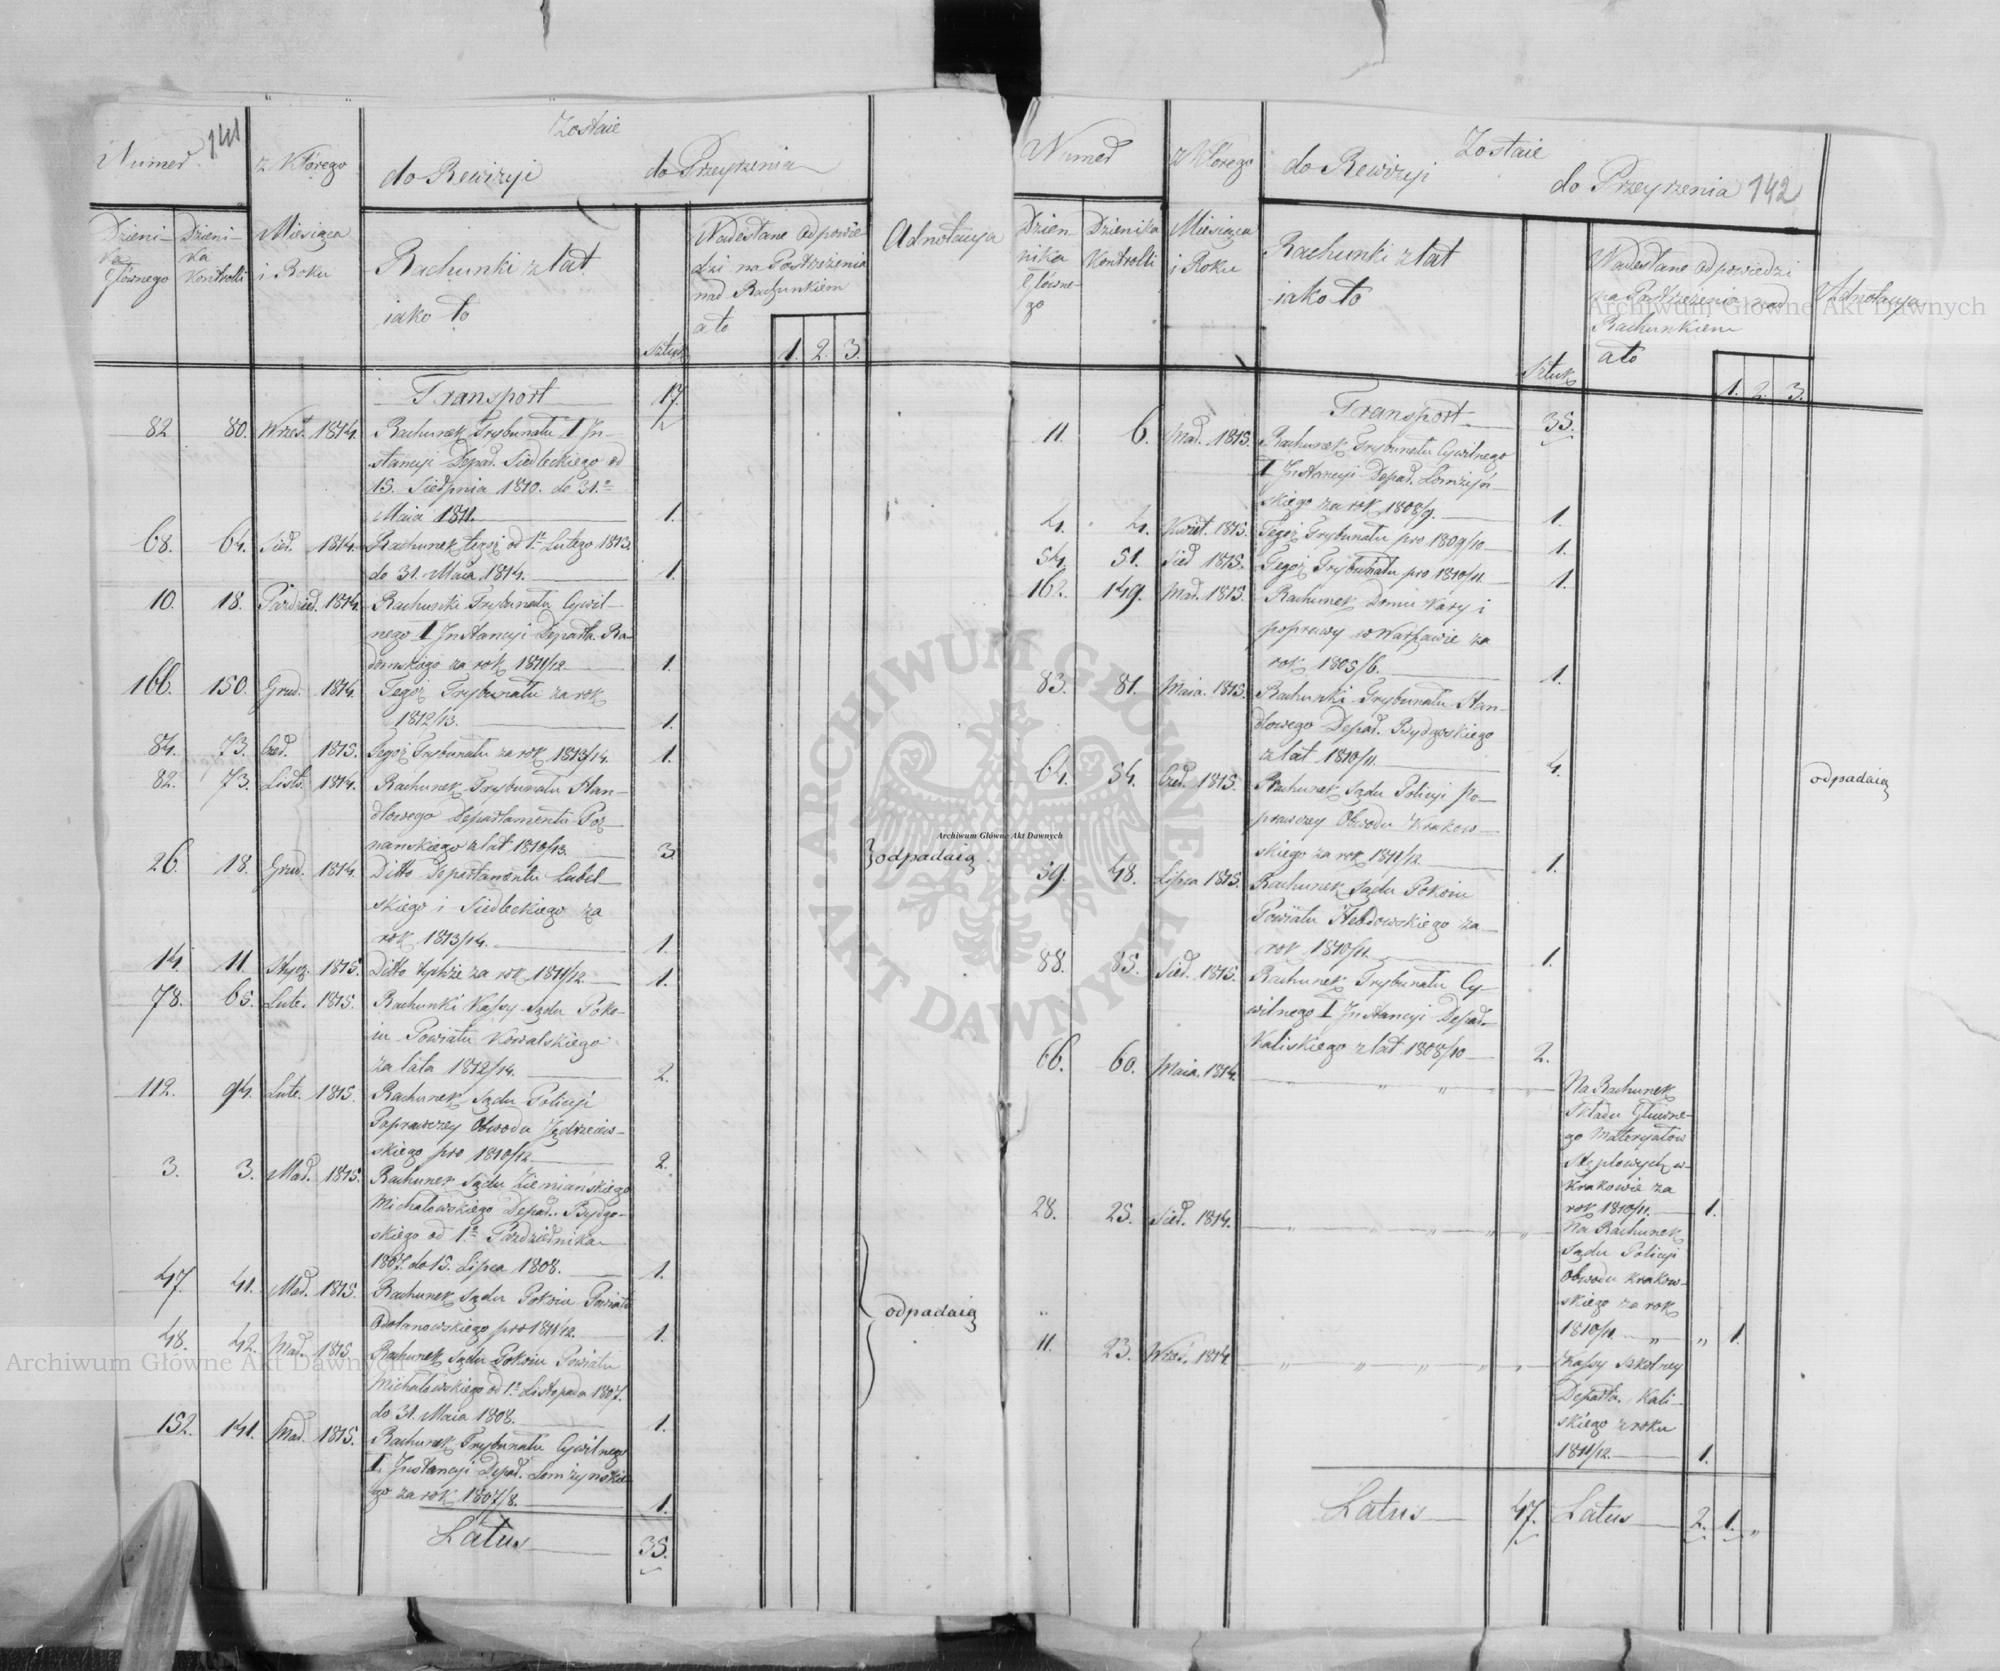 141
Numer
z Którego
Zostaie
do Rewizyi
do Przeyrzenia
Dzieni-
ka
Głównego
Dzieni-
ka
Kontrolli
Miesiąca
i Roku
Rachunki z lat
iako to
Sztuk
Nadesłane Odpowie
dzi na Postrzeżenia
nad Rachunkiem
a to
1. 2. 3.
Adnotacya
Transport 17.
82 80. Wrześ. 1814. Rachunek Trybunału I In-
stancyi Depar. Siedleckiego od
15. Sierpnia 1810. do 31.o
Maia 1811. 1.
68. 64. Sier. 1814. Rachunek tegoż od 1o Lutego 1813.
do 31. Maia 1814. 1.
10. 18. Paździer. 1814. Rachunki Trybunału Cywil-
nego I Instancyi Departa. Ra-
domskiego za rok 1811/12 1.
166. 150. Grud. 1814. Tegoż Trybunału za rok
1812/13. 1.
84. 73. Czer. 1815. Tegoż Trybunału za rok 1813/14. 1.
82. 73. Listo. 1814. Rachunek Trybunału Han-
dlowego Departamentu Poz-
nańskiego z lat 1810/13. 3.
26. 18. Grud. 1814. Ditto Departamentu Lubel-
skiego i Siedleckiego za
rok 1813/14. 1.
odpadaią
14. 11. Stycz. 1815. Ditto tychże za rok 1811/12. 1.
78. 65. Lute. 1815. Rachunki Kassy Sądu Poko-
iu Powiatu Kowalskiego
za lata 1812/14. 2.
112. 94. Lute. 1815. Rachunek Sądu Policyi
Poprawczey Obwodu Jędrzeiow-
skiego pro 1810/12. 2.
3. 3. Mar. 1815. Rachunek Sądu Ziemiańskiego
Michałowskiego Depar. Bydgo-
skiego od 1o Października
1807. do 15. Lipca 1808. 1.
47. 41. Mar. 1815. Rachunek Sądu Pokoiu Powiatu
Odolanowskiego pro 1811/12. 1.
odpadaią
48. 42. Mar. 1815 Rachunek Sądu Pokoiu Powiatu
Michałowskiego od 1o Listopada 1807.
do 31. Maia 1808. 1.
152. 141. Mar. 1815. Rachunek Trybunału Cywilnego
I. Instancyi Depar. Łomżyńskie
go za rok 1807/8. 1.
Latus 35.
Numer
z Którego
Zostaie
do Rewizyi
do Przeyrzenia 142
Dzien-
nika
Główne-
go
Dzienika
Kontrolli
Miesiąca
i Roku
Rachunki z lat
iako to
Sztuk
Nadesłane odpowiedzi
na Postrzeżenia nad
Rachunkiem
a to
1. 2. 3.
Adnotacya
Transport 35.
11. 6. Mar. 1815. Rachunek Trybunału Cywilnego
I Instancyi Depar. Łomżyń-
skiego za rok 1808/9. 1.
4. 4. Kwiet. 1815. Tegoż Trybunału pro 1809/10 1.
54. 51. Sier 1815. Tegoż Trybunału pro 1810/11 1.
162. 149. Mar. 1815. Rachunek Domu Kary i
poprawy w Warszawie za
rok 1805/6. 1.
83. 81. Maia. 1815. Rachunki Trybunału Han-
dlowego Depar. Bydgoskiego
z lat 1810/11. 4.
odpadaią
64. 54. Czer. 1815. Rachunek Sądu Policyi Po-
prawczey Obwodu Krakow-
skiego za rok 1811/12. 1.
59. 48. Lipca 1815. Rachunek Sądu Pokoiu
Powiatu Hebdowskiego za
rok 1810/11. 1.
88. 85. Sier. 1815. Rachunek Trybunału Cy-
wilnego I Instancyi Depar.
Kaliskiego z lat 1808/10 2.
66. 60. Maia. 1814. " " " Na Rachunek
Składu Główne-
go Materyałow
Steplowych w
Krakowie za
rok 1810/11. 1.
28. 25. Sier. 1814. " " " " Na Rachunek
Sądu Policyi
Obwodu Krakow-
skiego za rok
1810/11. " " 1.
11. 23. Wrześ. 1814. " " " " " Kassy szkolney
Departa. Kali-
skiego z roku
1811/12. 1.
Latus 47. Latus 2. 1. "
Archiwum Główne Akt Dawnych
Archiwum Główne Akt Dawnych
Archiwum Główne Akt Dawnych
ARCHIWUM GŁÓWNE
AKT DAWNYCH